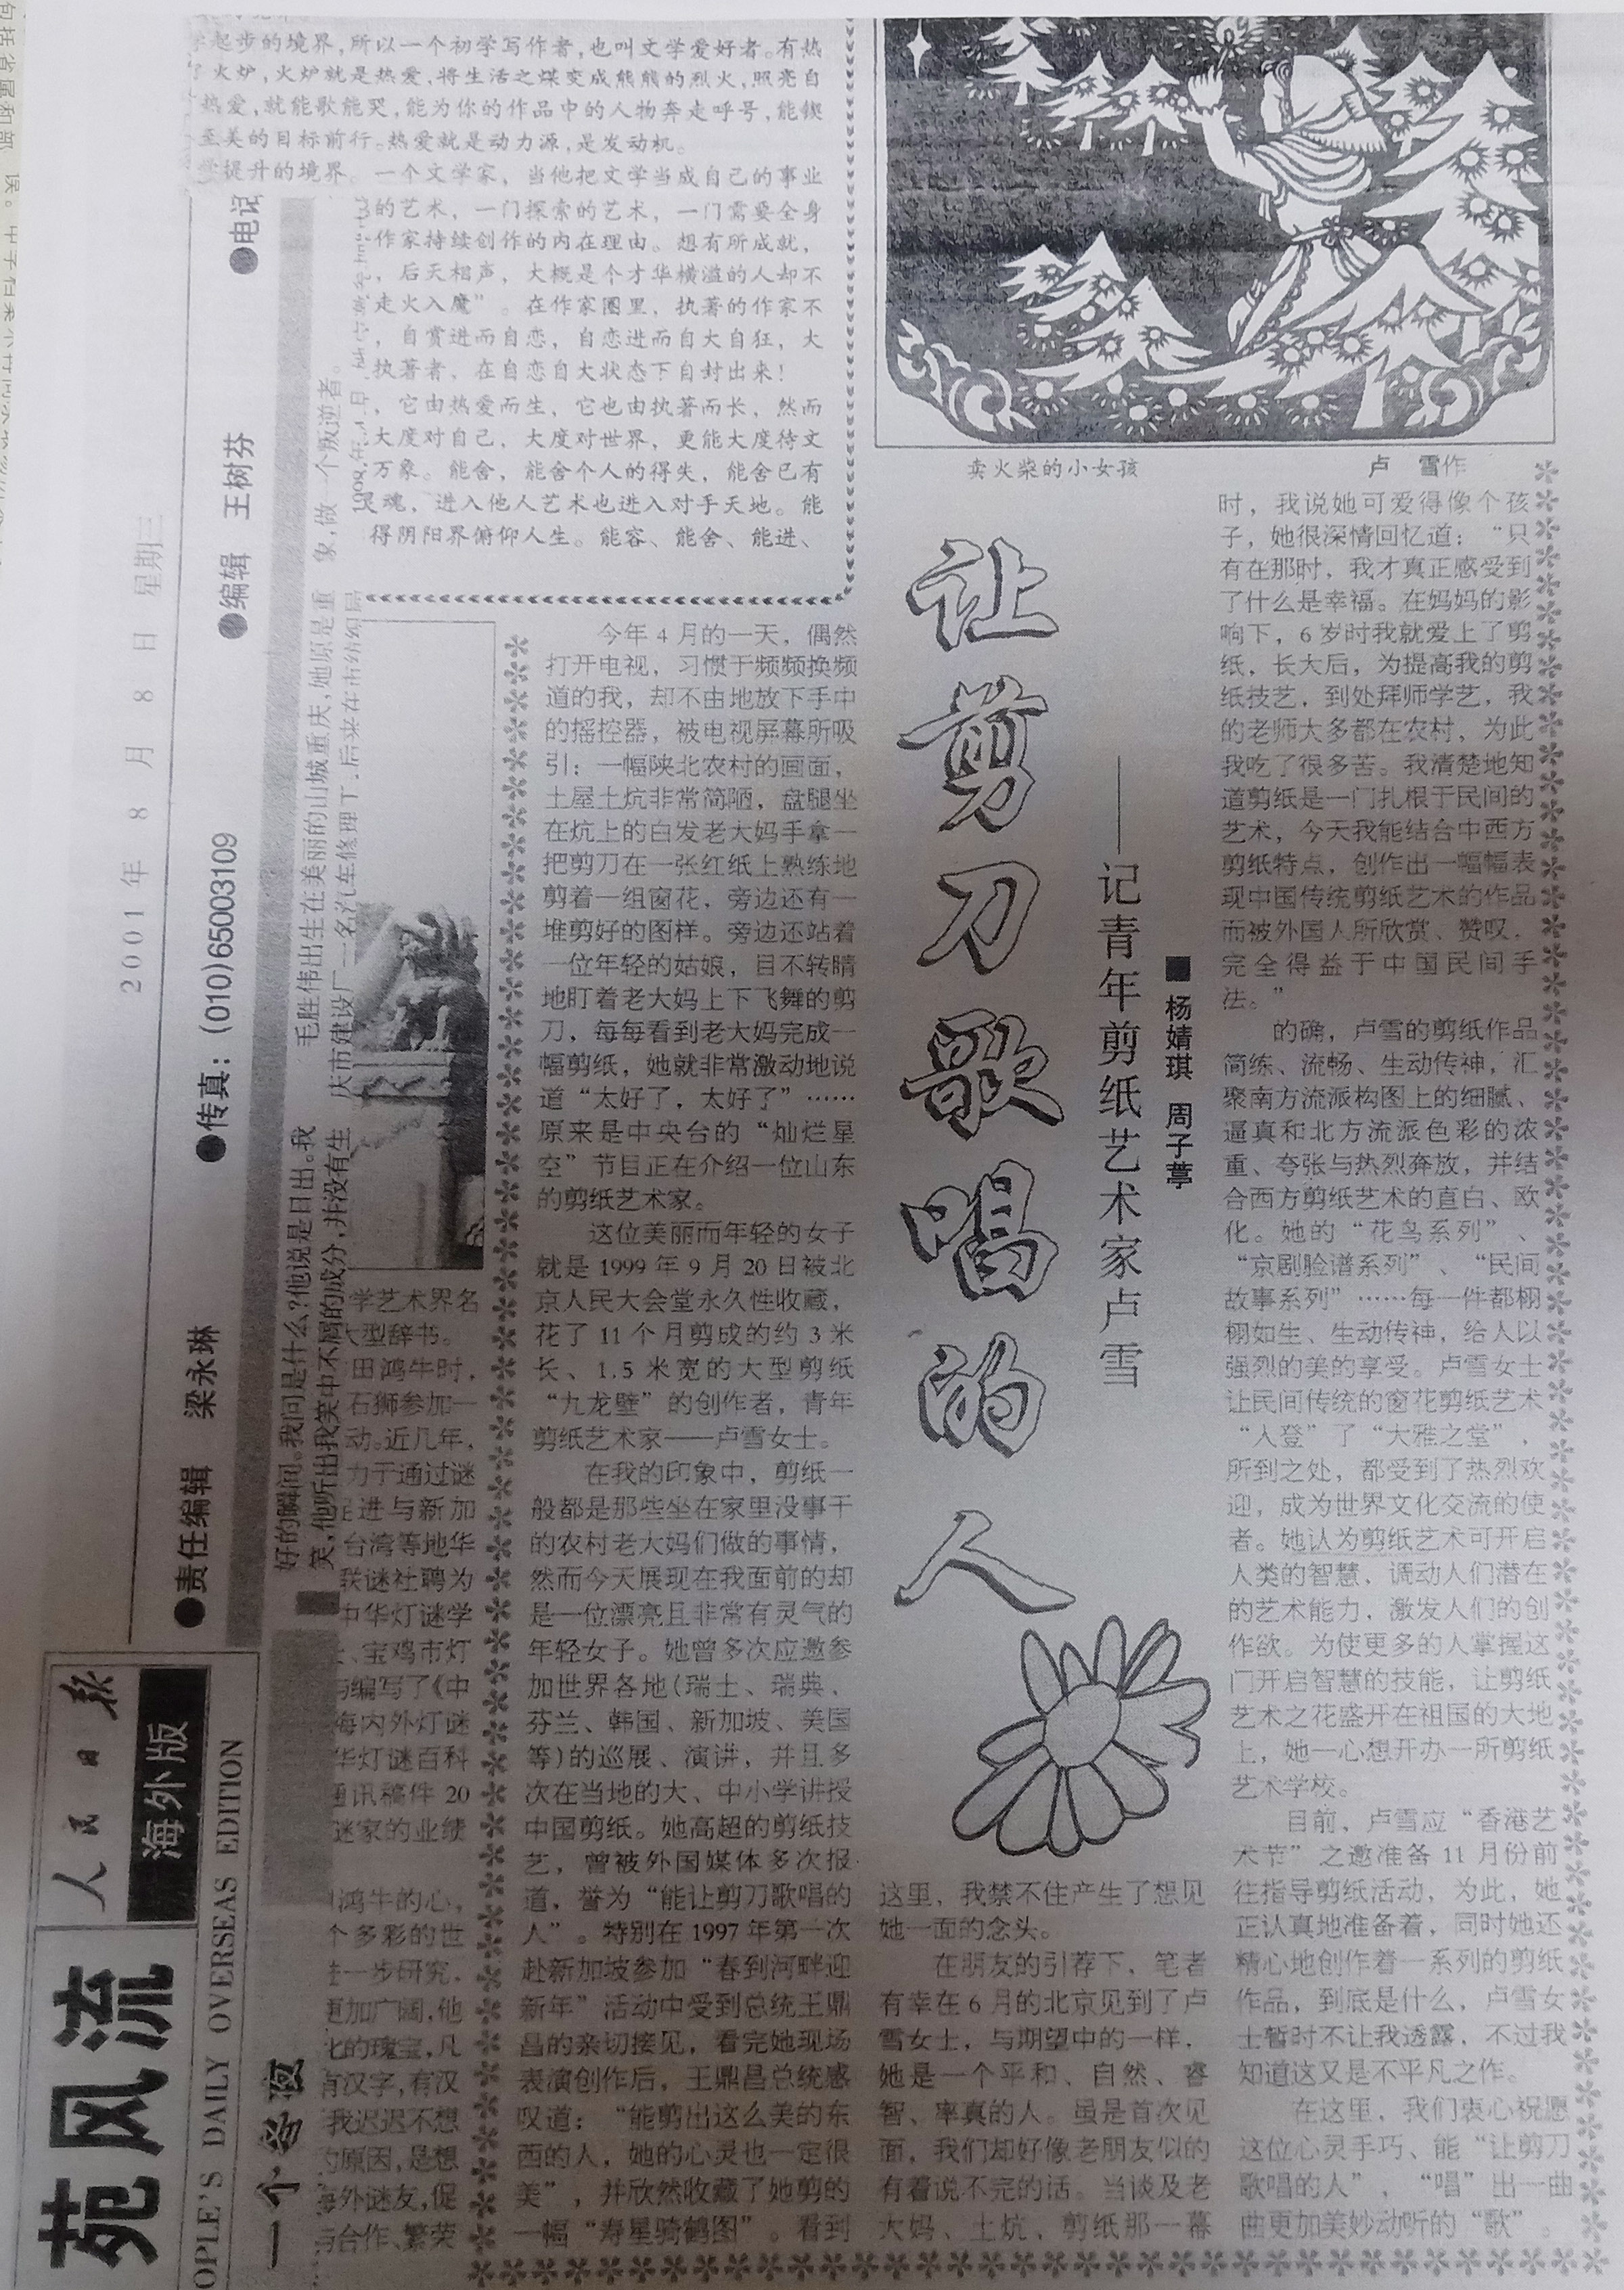 学起步的境界,所以一个初学写作者,也叫文学爱好者。有热
火炉,火炉就是热爱,将生活之煤变成熊熊的烈火,照亮自
热爱,就能歌能哭,能为你的作品中的人物奔走呼号,能锲
至美的目标前行。热爱就是动力源,是发动机。
学提升的境界。一个文学家,当他把文学当成自己的事业
的艺术,一门探索的艺术,一门需要全身
作家持续创作的内在理由。想有所成就,
,后天相声,大概是个才华横溢的人却不
走火入魔”。在作家圈里,执著的作家不
,自赏进而自恋,自恋进而自大自狂,大
执著者,在自恋自大状态下自封出来!
,它由热爱而生,它也由执著而长,然而
大度对自己,大度对世界,更能大度待文
万象。能舍,能舍个人的得失,能舍已有
灵魂,进入他人艺术也进入对手天地。能
得阴阳界俯仰人生。能容、能舍、能进、
卖火柴的小女孩
卢 雪作
让剪刀歌唱的人
——记青年剪纸艺术家卢雪
■杨婧琪 周子葶
今年 4 月的一天,偶然
打开电视,习惯于频频换频
道的我,却不由地放下手中
的摇控器,被电视屏幕所吸
引:一幅陕北农村的画面,
土屋土炕非常简陋,盘腿坐
在炕上的白发老大妈手拿一
把剪刀在一张红纸上熟练地
剪着一组窗花,旁边还有一
堆剪好的图样。旁边还站着
一位年轻的姑娘,目不转睛
地盯着老大妈上下飞舞的剪
刀,每每看到老大妈完成一
幅剪纸,她就非常激动地说
道“太好了,太好了”……
原来是中央台的“灿烂星
空”节目正在介绍一位山东
的剪纸艺术家。
这位美丽而年轻的女子
就是 1999 年 9 月 20 日被北
京人民大会堂永久性收藏,
花了 11 个月剪成的约 3 米
长、1.5 米宽的大型剪纸
“九龙壁”的创作者,青年
剪纸艺术家——卢雪女士。
在我的印象中,剪纸一
般都是那些坐在家里没事干
的农村老大妈们做的事情,
然而今天展现在我面前的却
是一位漂亮且非常有灵气的
年轻女子。她曾多次应邀参
加世界各地(瑞士、瑞典、
芬兰、韩国、新加坡、美国
等)的巡展、演讲,并且多
次在当地的大、中小学讲授
中国剪纸。她高超的剪纸技
艺,曾被外国媒体多次报
道,誉为“能让剪刀歌唱的
人”。特别在 1997 年第一次
赴新加坡参加“春到河畔迎
新年”活动中受到总统王鼎
昌的亲切接见,看完她现场
表演创作后,王鼎昌总统感
叹道:“能剪出这么美的东
西的人,她的心灵也一定很
美”,并欣然收藏了她剪的
一幅“寿星骑鹤图”。看到
这里,我禁不住产生了想见
她一面的念头。
在朋友的引荐下,笔者
有幸在 6 月的北京见到了卢
雪女士,与期望中的一样,
她是一个平和、自然、睿
智、率真的人。虽是首次见
面,我们却好像老朋友似的
有着说不完的话。当谈及老
大妈、土炕、剪纸那一幕
时,我说她可爱得像个孩
子,她很深情回忆道:“只
有在那时,我才真正感受到
了什么是幸福。在妈妈的影
响下,6 岁时我就爱上了剪
纸,长大后,为提高我的剪
纸技艺,到处拜师学艺,我
的老师大多都在农村,为此
我吃了很多苦。我清楚地知
道剪纸是一门扎根于民间的
艺术,今天我能结合中西方
剪纸特点,创作出一幅幅表
现中国传统剪纸艺术的作品
而被外国人所欣赏、赞叹,
完全得益于中国民间手
法。”
的确,卢雪的剪纸作品
简练、流畅、生动传神,汇
聚南方流派构图上的细腻、
逼真和北方流派色彩的浓
重、夸张与热烈奔放,并结
合西方剪纸艺术的直白、欧
化。她的“花鸟系列”、
“京剧脸谱系列”、“民间
故事系列”……每一件都栩
栩如生、生动传神,给人以
强烈的美的享受。卢雪女士
让民间传统的窗花剪纸艺术
“入登”了“大雅之堂”,
所到之处,都受到了热烈欢
迎,成为世界文化交流的使
者。她认为剪纸艺术可开启
人类的智慧,调动人们潜在
的艺术能力,激发人们的创
作欲。为使更多的人掌握这
门开启智慧的技能,让剪纸
艺术之花盛开在祖国的大地
上,她一心想开办一所剪纸
艺术学校。
目前,卢雪应“香港艺
术节”之邀准备 11 月份前
往指导剪纸活动,为此,她
正认真地准备着,同时她还
精心地创作着一系列的剪纸
作品,到底是什么,卢雪女
士暂时不让我透露,不过我
知道这又是不平凡之作。
在这里,我们衷心祝愿
这位心灵手巧、能“让剪刀
歌唱的人”,“唱”出一曲
曲更加美妙动听的“歌”。
学艺术界名
大型辞书。
田鸿牛时,
石狮参加一
动。近几年,
力于通过谜
促进与新加
台湾等地华
联谜社聘为
中华灯谜学
、宝鸡市灯
编写了《中
海内外灯谜
华灯谜百科
通讯稿件 20
谜家的业绩
鸿牛的心,
个多彩的世
进一步研究,
更加广阔,他
化的瑰宝,凡
有汉字,有汉
我迟迟不想
的原因,是想
海外谜友,促
与合作、繁荣
2001 年 8 月 8 日 星期三
●责任编辑 梁永琳 ●传真:(010)65003109 ●编辑 王树芬 ●电记
人民日报
海外版
OPLE'S DAILY OVERSEAS EDITION
苑风流
好的瞬间。我问是什么?他说是日出。我
笑,他听出我笑中不屑的成分,并没有生
毛胜伟出生在美丽的山城重庆,她原是重
庆市建设厂一名汽车修理工,后来在
象,做一个叛逆者。